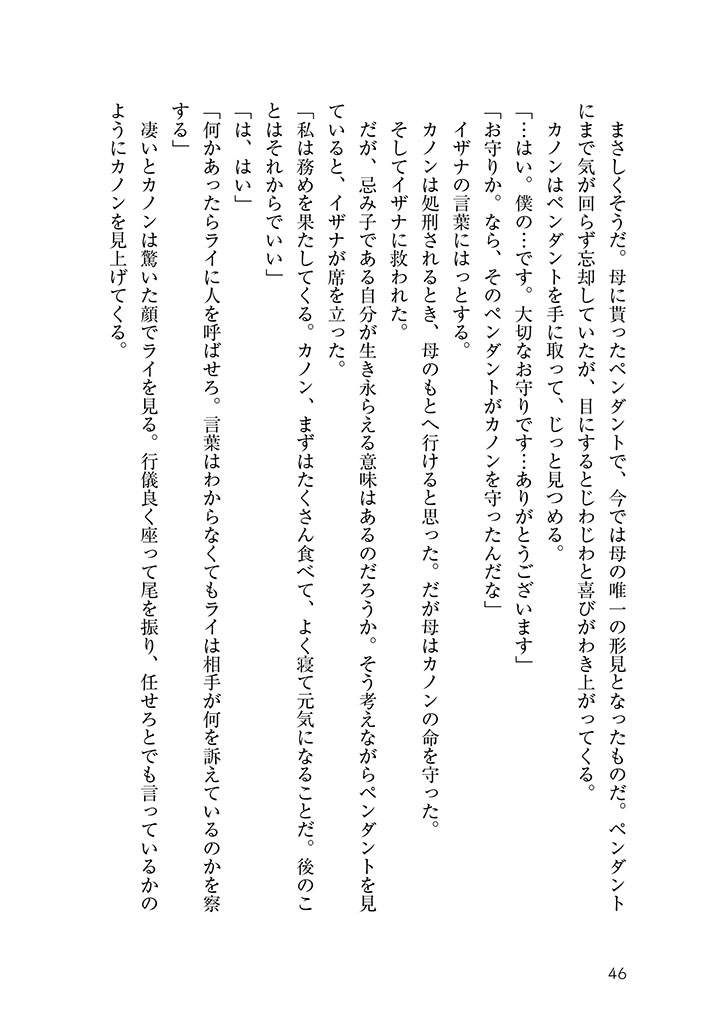 まさしくそうだ。母に貰ったペンダントで、今では母の唯一の形見となったものだ。ペンダント
にまで気が回らず忘却していたが、目にするとじわじわと喜びがわき上がってくる。
カノンはペンダントを手に取って、じっと見つめる。
「…はい。僕の…です。大切なお守りです…ありがとうございます」
「お守りか。なら、そのペンダントがカノンを守ったんだな」
イザナの言葉にはっとする。
カノンは処刑されるとき、母のもとへ行けると思った。だが母はカノンの命を守った。
そしてイザナに救われた。
だが、忌み子である自分が生き永らえる意味はあるのだろうか。そう考えながらペンダントを見
ていると、イザナが席を立った。
「私は務めを果たしてくる。カノン、まずはたくさん食べて、よく寝て元気になることだ。後のこ
とはそれからでいい」
「は、はい」
「何かあったらライに人を呼ばせろ。言葉はわからなくてもライは相手が何を訴えているのかを察
する」
凄いとカノンは驚いた顔でライを見る。行儀良く座って尾を振り、任せろとでも言っているかの
ようにカノンを見上げてくる。
46